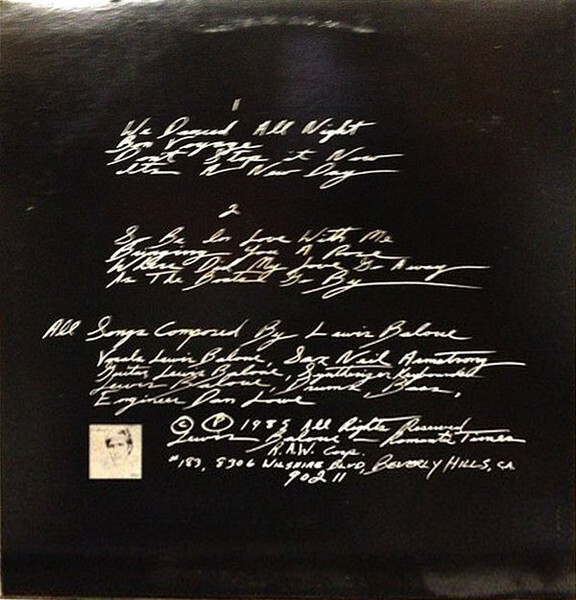 1
We Danced All Night
Bon Voyage
Don't Stop it Now
It's A New Day
2
So Be In Love With Me
Bringing You A Rose
Where Did My Love Go Away
As The Boats Go By
All Songs Composed By Lewis Baloue
Vocals Lewis Baloue, Sax Neil Armstrong
Guitar Lewis Baloue, Synthesizer Keyboards
Lewis Baloue, Drums, Bass,
Engineer Dan Lowe
© ℗ 1985 All Rights Reserved
Lewis Baloue - Romantic Times
R.A.W. Corp.
#183, 8306 WILSHIRE BLVD, BEVERLY HILLS, CA.
90211